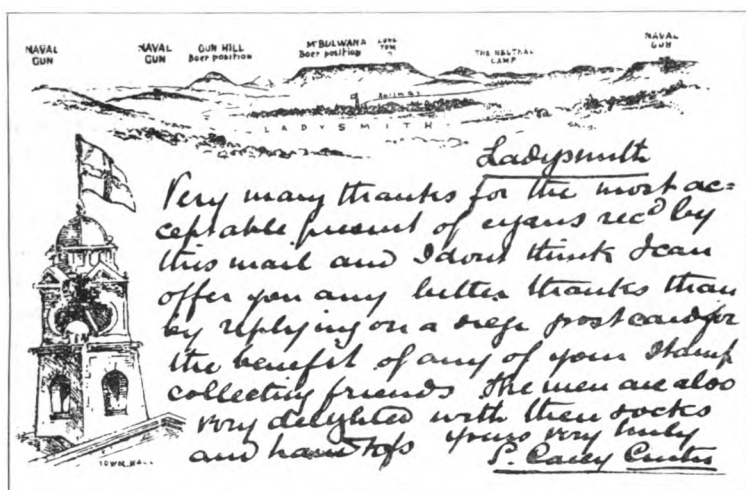 NAVAL GUN
NAVAL GUN
GUN HILL Boer position
Mt BULWANA Boer position
LONG TOM
THE NEUTRAL CAMP
NAVAL GUN
LADYSMITH
Ladysmith
Very many thanks for the most ac=
ceptable present of cigars recd by
this mail and I dont think I can
offer you any better thanks than
by replying on a siege post card for
the benefit of any of your stamp
collecting friends The men are also
very delighted with their socks
and yours very truly
P. Carey Curtis
TOWN HALL